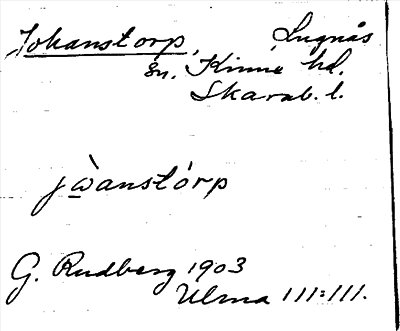 Johanstorp, Lugnås
sn. Kinne hd.
Skarab. l.
jòanstórp
G. Rudberg 1903
Ulma 111:111.